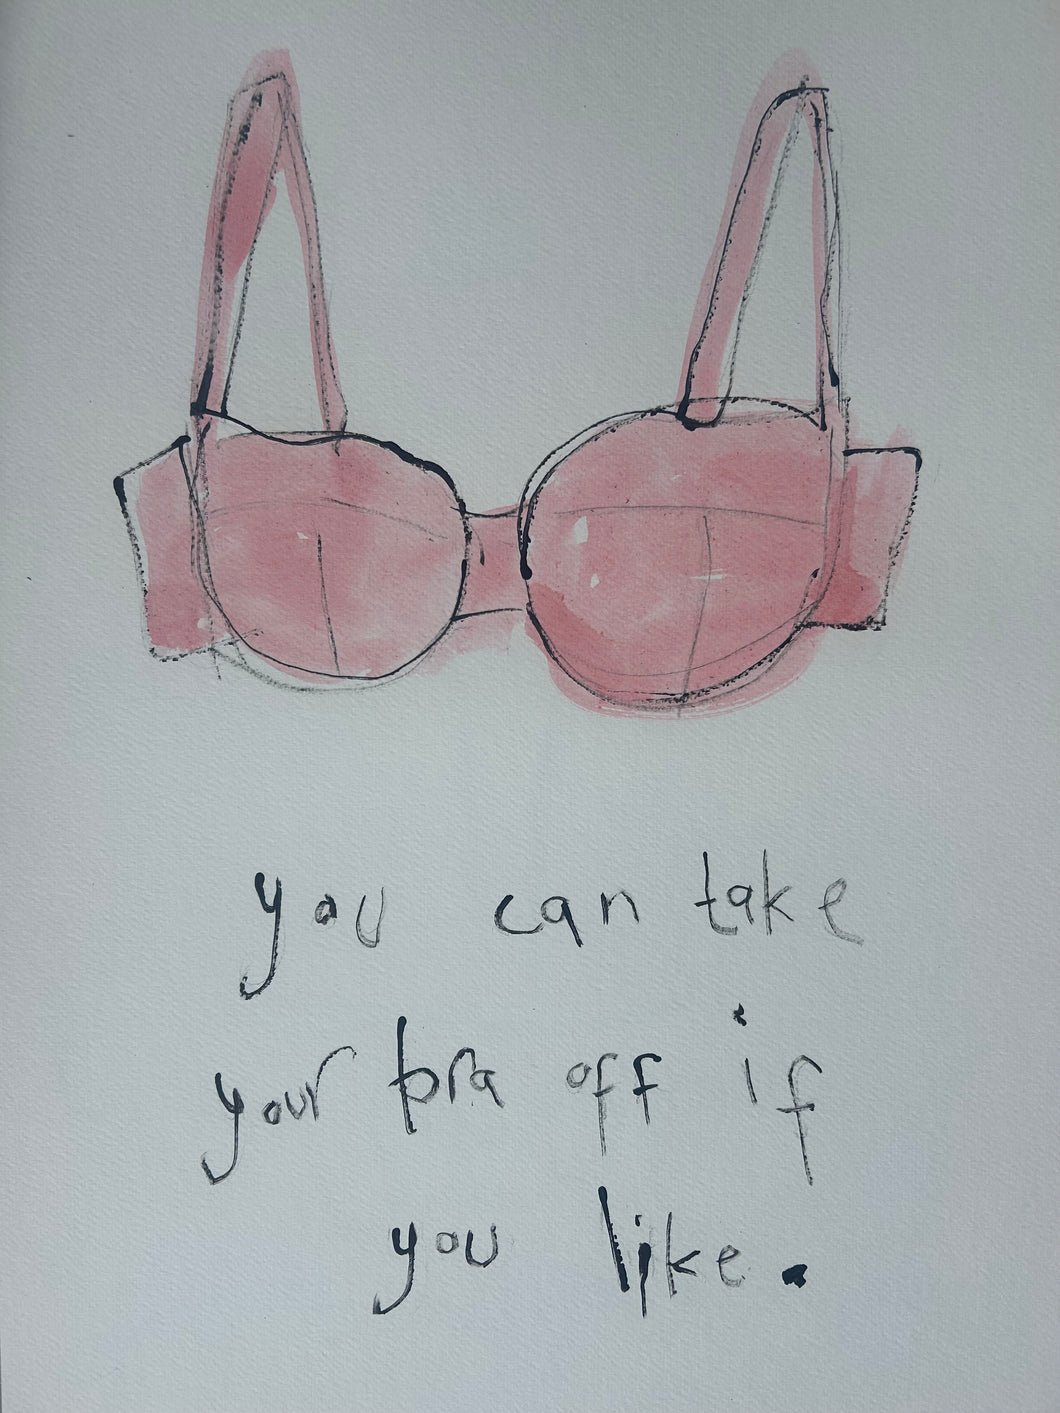 you can take
your bra off if
you like.